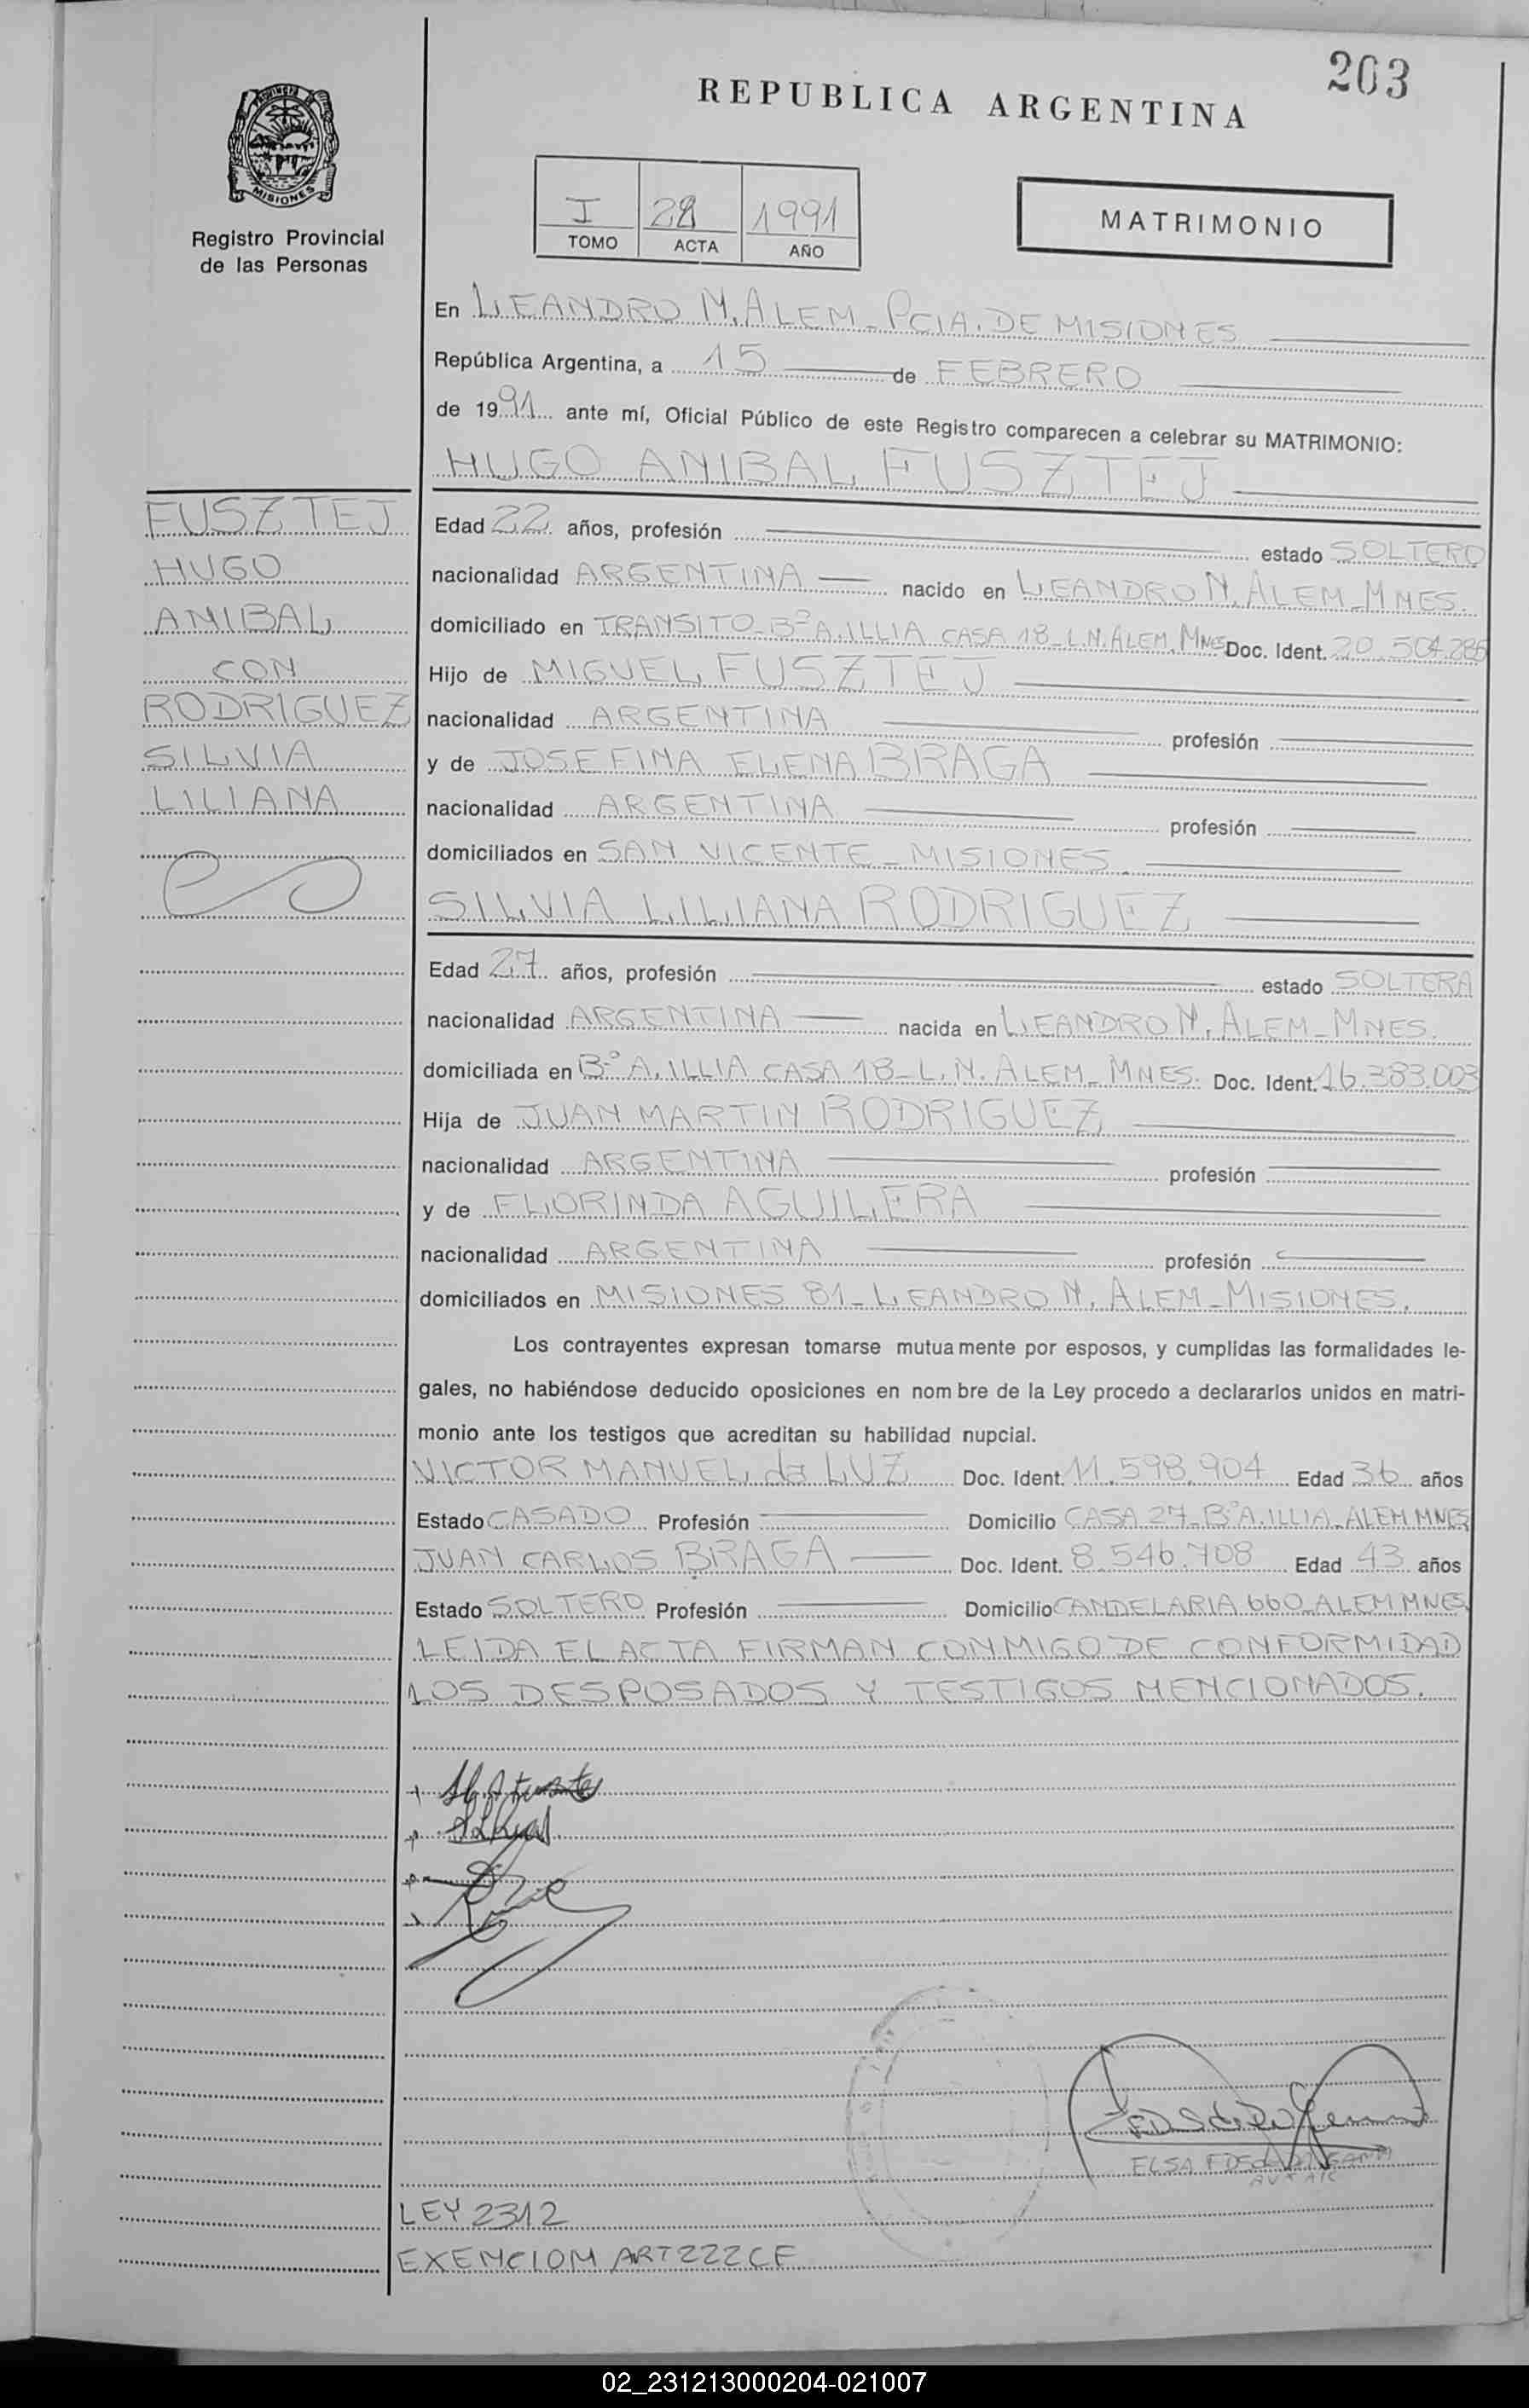 203
REPUBLICA ARGENTINA
PROVINCIA
MISIONES
Registro Provincial
de las Personas
I 28 1991
TOMO ACTA AÑO
MATRIMONIO
En LEANDRO N. ALEM - PCIA. DE MISIONES
República Argentina, a 15 de FEBRERO
de 1991 ante mí, Oficial Público de este Registro comparecen a celebrar su MATRIMONIO:
HUGO ANIBAL FUSZTEJ
FUSZTEJ
HUGO
ANIBAL
CON
RODRIGUEZ
SILVIA
LILIANA
Edad 22 años, profesión estado SOLTERO
nacionalidad ARGENTINA nacido en LEANDRO N. ALEM - MNES.
domiciliado en TRANSITO - Bº A. ILLIA CASA 18 - L.N. ALEM. MNES Doc. Ident. 20.504.286
Hijo de MIGUEL FUSZTEJ
nacionalidad ARGENTINA profesión
y de JOSEFINA ELENA BRAGA
nacionalidad ARGENTINA profesión
domiciliados en SAN VICENTE - MISIONES
SILVIA LILIANA RODRIGUEZ
Edad 27 años, profesión estado SOLTERA
nacionalidad ARGENTINA nacida en LEANDRO N. ALEM - MNES.
domiciliada en Bº A. ILLIA CASA 18 - L.N. ALEM - MNES. Doc. Ident. 16.383.003
Hija de JUAN MARTIN RODRIGUEZ
nacionalidad ARGENTINA profesión
y de FLORINDA AGUILERA
nacionalidad ARGENTINA profesión
domiciliados en MISIONES 81 - LEANDRO N. ALEM - MISIONES.
Los contrayentes expresan tomarse mutuamente por esposos, y cumplidas las formalidades le-
gales, no habiéndose deducido oposiciones en nombre de la Ley procedo a declararlos unidos en matri-
monio ante los testigos que acreditan su habilidad nupcial.
VICTOR MANUEL da LUZ Doc. Ident. 11.598.904 Edad 36 años
Estado CASADO Profesión Domicilio CASA 27 - Bº A. ILLIA - ALEM MNES
JUAN CARLOS BRAGA Doc. Ident. 8.546.708 Edad 43 años
Estado SOLTERO Profesión Domicilio CANDELARIA 660 - ALEM MNES.
LEIDA EL ACTA FIRMAN CONMIGO DE CONFORMIDAD
LOS DESPOSADOS Y TESTIGOS MENCIONADOS.
ELSA
LEY 2312
EXENCION ART 222 CF
02_231213000204-021007